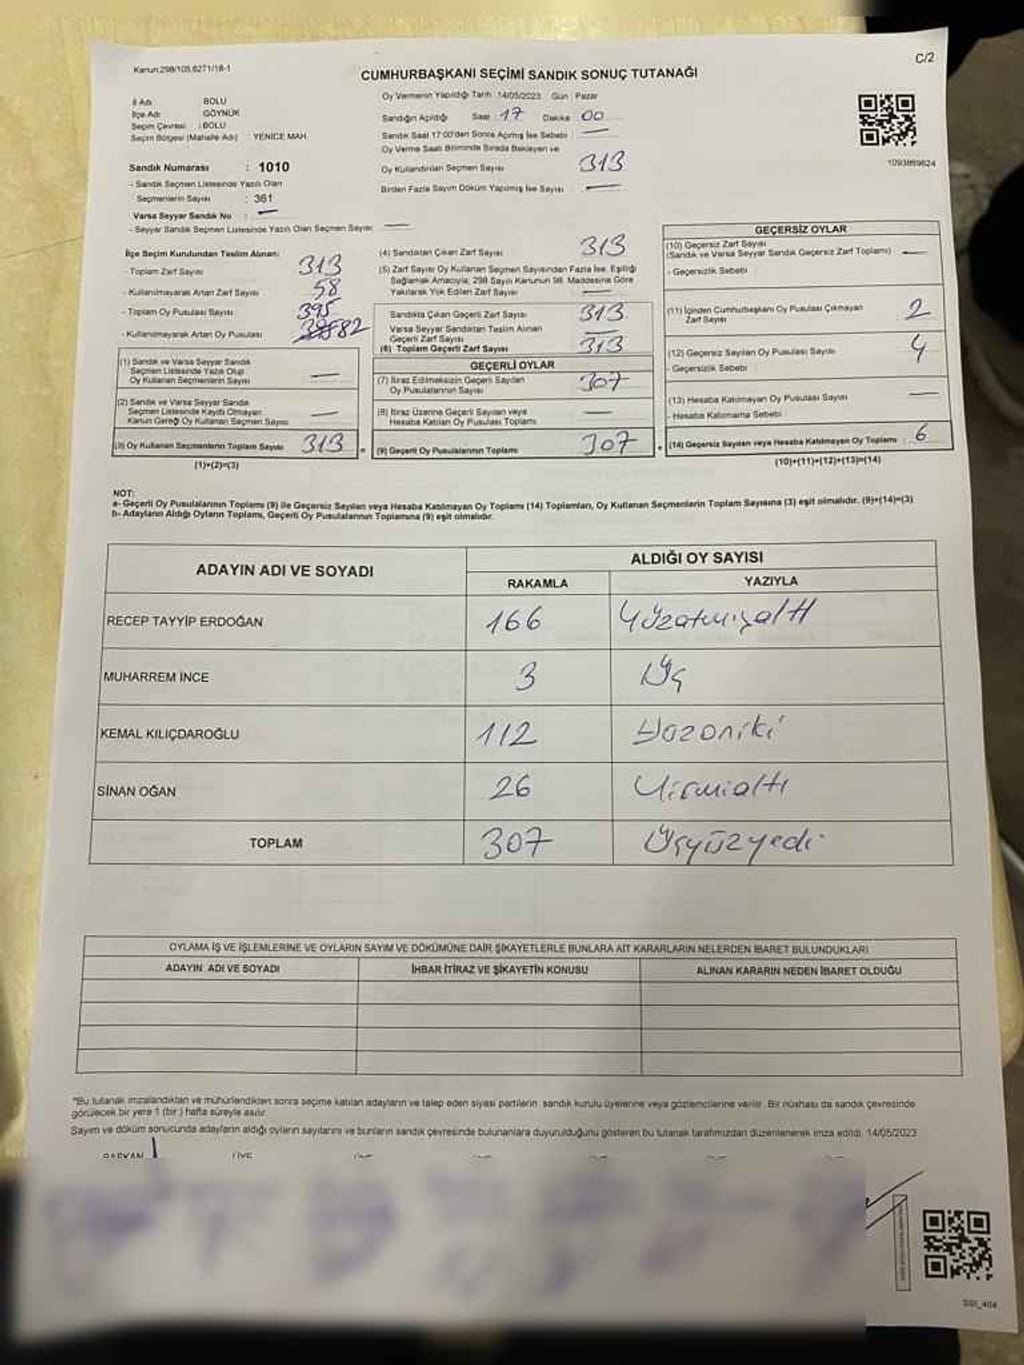 Kanun:298/105,6271/18-1
C/2
CUMHURBAŞKANI SEÇİMİ SANDIK SONUÇ TUTANAĞI
İl Adı BOLU
İlçe Adı GÖYNÜK
Seçim Çevresi : BOLU
Seçim Bölgesi (Mahalle Adı) : YENİCE MAH.
Sandık Numarası : 1010
- Sandık Seçmen Listesinde Yazılı Olan
Seçmenlerin Sayısı : 361
Varsa Seyyar Sandık No : —
- Seyyar Sandık Seçmen Listesinde Yazılı Olan Seçmen Sayısı —
Oy Vermenin Yapıldığı Tarih :14/05/2023 Gün : Pazar
Sandığın Açıldığı Saat : 17 Dakika : 00
Sandık Saat 17:00'den Sonra Açılmış İse Sebebi : —
Oy Verme Saati Bitiminde Sırada Bekleyen ve
Oy Kullandırılan Seçmen Sayısı : 313
Birden Fazla Sayım Döküm Yapılmış İse Sayısı : —
1093869624
İlçe Seçim Kurulundan Teslim Alınan:
- Toplam Zarf Sayısı 313
- Kullanılmayarak Artan Zarf Sayısı : 58
- Toplam Oy Pusulası Sayısı : 395
- Kullanılmayarak Artan Oy Pusulası : 82
(1) Sandık ve Varsa Seyyar Sandık
Seçmen Listesinde Yazılı Olup
Oy Kullanan Seçmenlerin Sayısı : —
(2) Sandık ve Varsa Seyyar Sandık
Seçmen Listesinde Kayıtlı Olmayan
Kanun Gereği Oy Kullanan Seçmen Sayısı —
(3) Oy Kullanan Seçmenlerin Toplam Sayısı : 313
(1)+(2)=(3)
(4) Sandıktan Çıkan Zarf Sayısı : 313
(5) Zarf Sayısı Oy Kullanan Seçmen Sayısından Fazla İse, Eşitliği
Sağlamak Amacıyla; 298 Sayılı Kanunun 98. Maddesine Göre
Yakılarak Yok Edilen Zarf Sayısı : —
Sandıkta Çıkan Geçerli Zarf Sayısı : 313
Varsa Seyyar Sandıktan Teslim Alınan
Geçerli Zarf Sayısı : —
(6) Toplam Geçerli Zarf Sayısı : 313
GEÇERLİ OYLAR
(7) İtiraz Edilmeksizin Geçerli Sayılan
Oy Pusulalarının Sayısı : 307
(8) İtiraz Üzerine Geçerli Sayılan veya
Hesaba Katılan Oy Pusulası Toplamı : —
(9) Geçerli Oy Pusulalarının Toplamı : 307
GEÇERSİZ OYLAR
(10) Geçersiz Zarf Sayısı
(Sandık ve Varsa Seyyar Sandık Geçersiz Zarf Toplamı) : —
- Geçersizlik Sebebi
(11) İçinden Cumhurbaşkanı Oy Pusulası Çıkmayan
Zarf Sayısı : 2
(12) Geçersiz Sayılan Oy Pusulası Sayısı : 4
- Geçersizlik Sebebi
(13) Hesaba Katılmayan Oy Pusulası Sayısı : —
- Hesaba Katılmama Sebebi
(14) Geçersiz Sayılan veya Hesaba Katılmayan Oy Toplamı : 6
(10)+(11)+(12)+(13)=(14)
NOT:
a- Geçerli Oy Pusulalarının Toplamı (9) ile Geçersiz Sayılan veya Hesaba Katılmayan Oy Toplamı (14) Toplamları, Oy Kullanan Seçmenlerin Toplam Sayısına (3) eşit olmalıdır. (9)+(14)=(3)
b- Adayların Aldığı Oyların Toplamı, Geçerli Oy Pusulalarının Toplamına (9) eşit olmalıdır.
ADAYIN ADI VE SOYADI
ALDIĞI OY SAYISI
RAKAMLA YAZIYLA
RECEP TAYYİP ERDOĞAN 166 Yüzatmışaltı
MUHARREM İNCE 3 Üç
KEMAL KILIÇDAROĞLU 112 Yüzoniki
SİNAN OĞAN 26 Yirmialtı
TOPLAM 307 Üçyüzyedi
OYLAMA İŞ VE İŞLEMLERİNE VE OYLARIN SAYIM VE DÖKÜMÜNE DAİR ŞİKAYETLERLE BUNLARA AİT KARARLARIN NELERDEN İBARET BULUNDUKLARI
ADAYIN ADI VE SOYADI İHBAR İTİRAZ VE ŞİKAYETİN KONUSU ALINAN KARARIN NEDEN İBARET OLDUĞU
*Bu tutanak imzalandıktan ve mühürlendikten sonra seçime katılan adayların ve talep eden siyasi partilerin sandık kurulu üyelerine veya gözlemcilerine verilir. Bir nüshası da sandık çevresinde
görülecek bir yere 1 (bir) hafta süreyle asılır.
Sayım ve döküm sonucunda adayların aldığı oyların sayılarını ve bunların sandık çevresinde bulunanlara duyurulduğunu gösteren bu tutanak tarafımızdan düzenlenerek imza edildi. 14/05/2023
BAŞKAN ÜYE